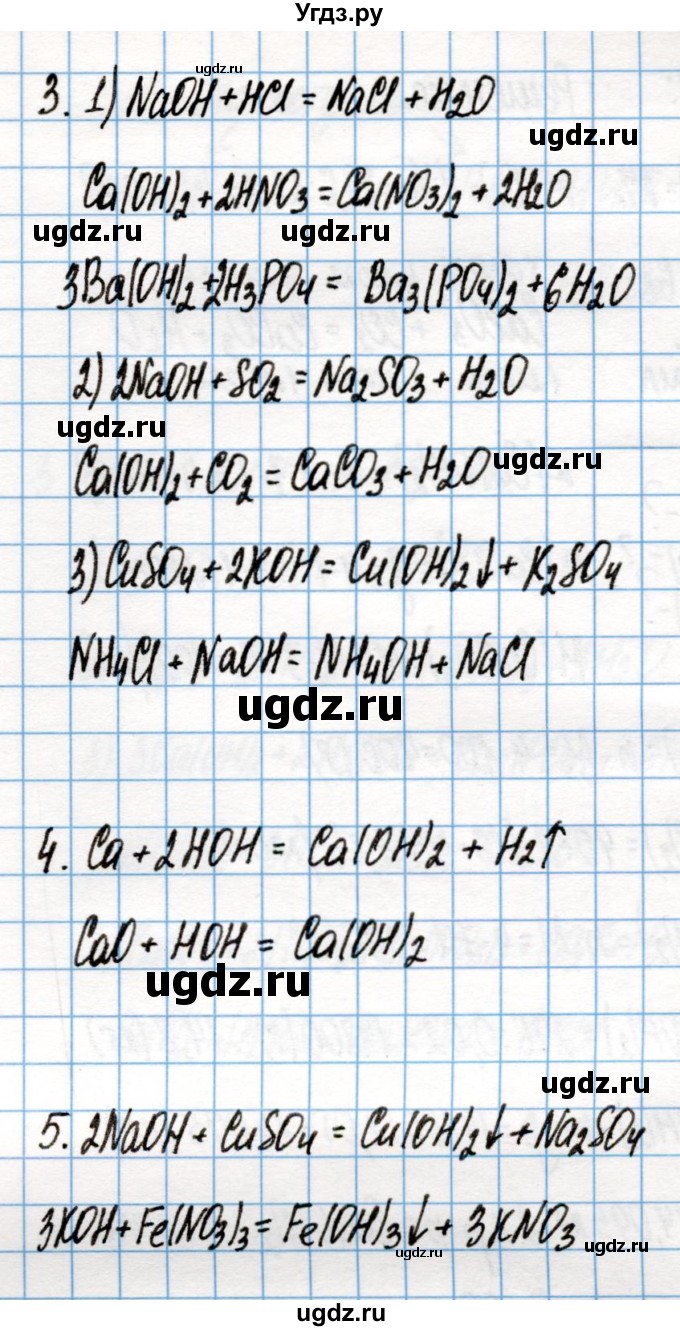 Угдз.ру
ugdz.ru
3. 1) NaOH + HCl = NaCl + H2O
ugdz.ru
Ca(OH)2 + 2HNO3 = Ca(NO3)2 + 2H2O
ugdz.ru ugdz.ru
3Ba(OH)2 + 2H3PO4 = Ba3(PO4)2 + 6H2O
2) 2NaOH + SO2 = Na2SO3 + H2O
ugdz.ru
Ca(OH)2 + CO2 = CaCO3 + H2O
ugdz.ru
3) CuSO4 + 2KOH = Cu(OH)2↓ + K2SO4
NH4Cl + NaOH = NH4OH + NaCl
ugdz.ru
4. Ca + 2HOH = Ca(OH)2 + H2↑
CaO + HOH = Ca(OH)2
ugdz.ru
ugdz.ru
5. 2NaOH + CuSO4 = Cu(OH)2↓ + Na2SO4
3KOH + Fe(NO3)3 = Fe(OH)3↓ + 3KNO3
ugdz.ru ugdz.ru
ugdz.ru